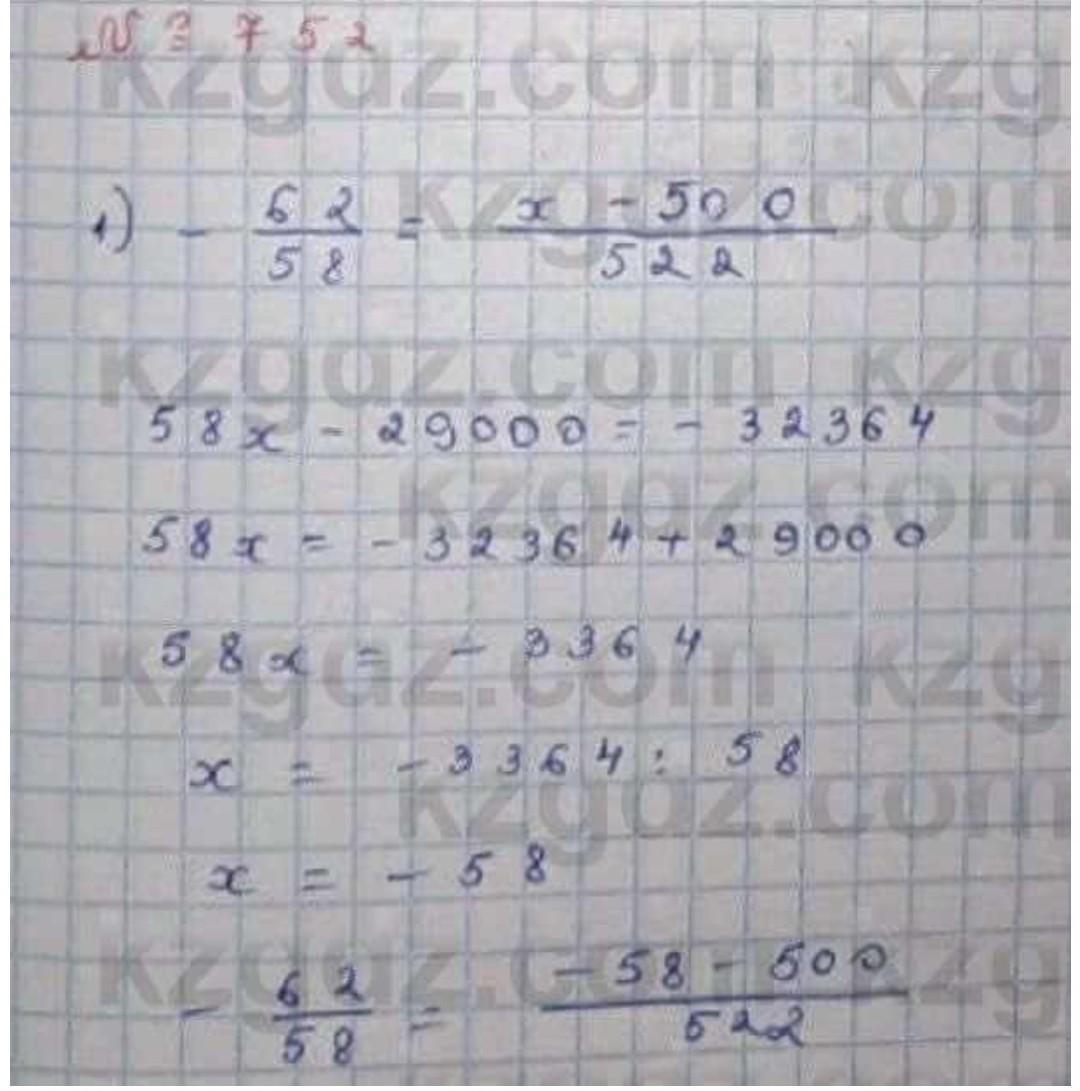 № 3752
1) - 62/58 = x - 500/522
58x - 29000 = - 32364
58x = - 32364 + 29000
58x = - 3364
x = - 3364 : 58
x = - 58
- 62/58 = - 58 - 500/522
kzgdz.com kzg
kzgdz.com
kzgdz.com kzg
kzgdz.com
kzgdz.com kzg
kzgdz.com
kzgdz.com kzg